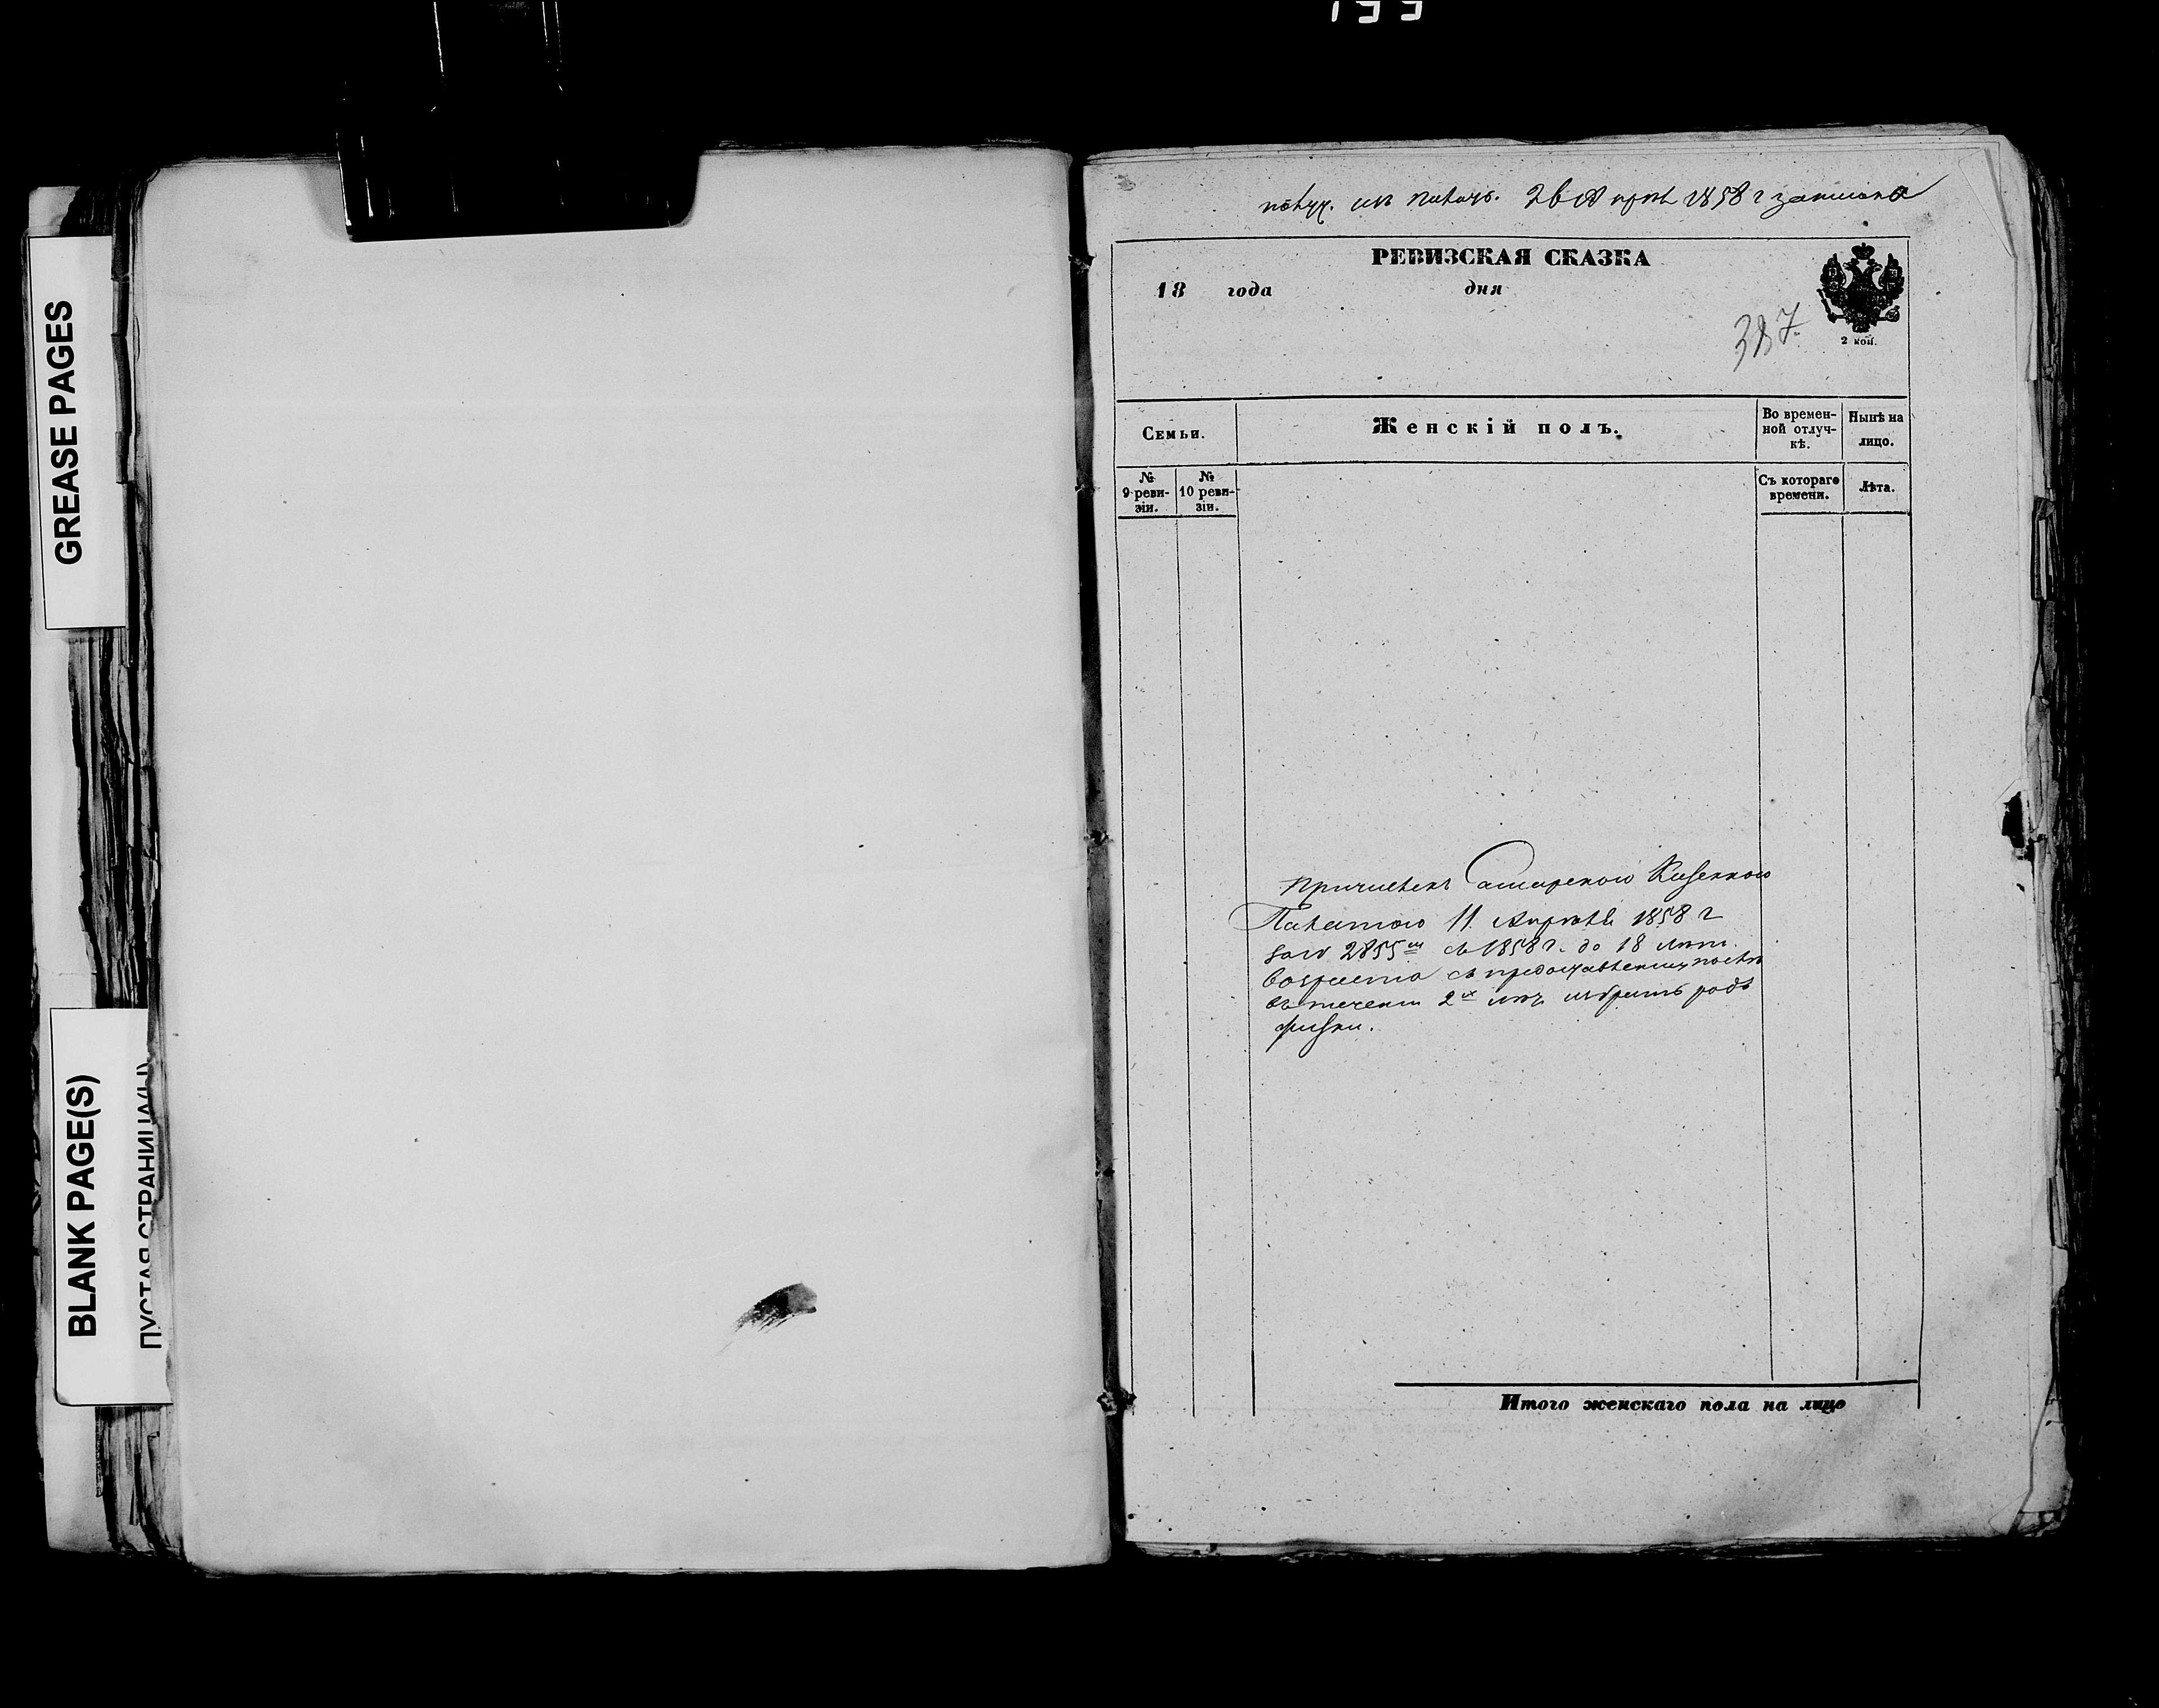 199
GREASE PAGES
BLANK PAGE(S)
ПУСТАЯ СТРАНИЦА(Ы)
получ. изъ Палаты. 26 Апрѣл 1858 г
РЕВИЗСКАЯ СКАЗКА
18 года дня
387.
2 коп.
Семьи.
Женскій полъ.
Во времен-
ной отлуч-
кѣ.
Нынѣ на
лицо.
№
9 реви-
зіи.
№
10 реви-
зіи.
Съ котораго
времени.
Лѣта.
Причисленъ Самарскою Казенною
Палатою 11 Апрѣля 1858 г
за № 2855 съ 1858 г. до 18 лѣт.
возраста съ предоставленіем послѣ
въ теченіи 2х лѣтъ избрать родъ
жизни.
Итого женскаго пола на лицо